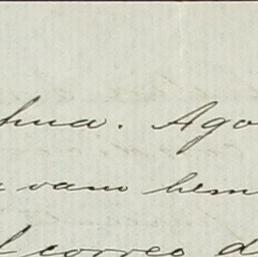 hua. Ago
vam hem
l correo d